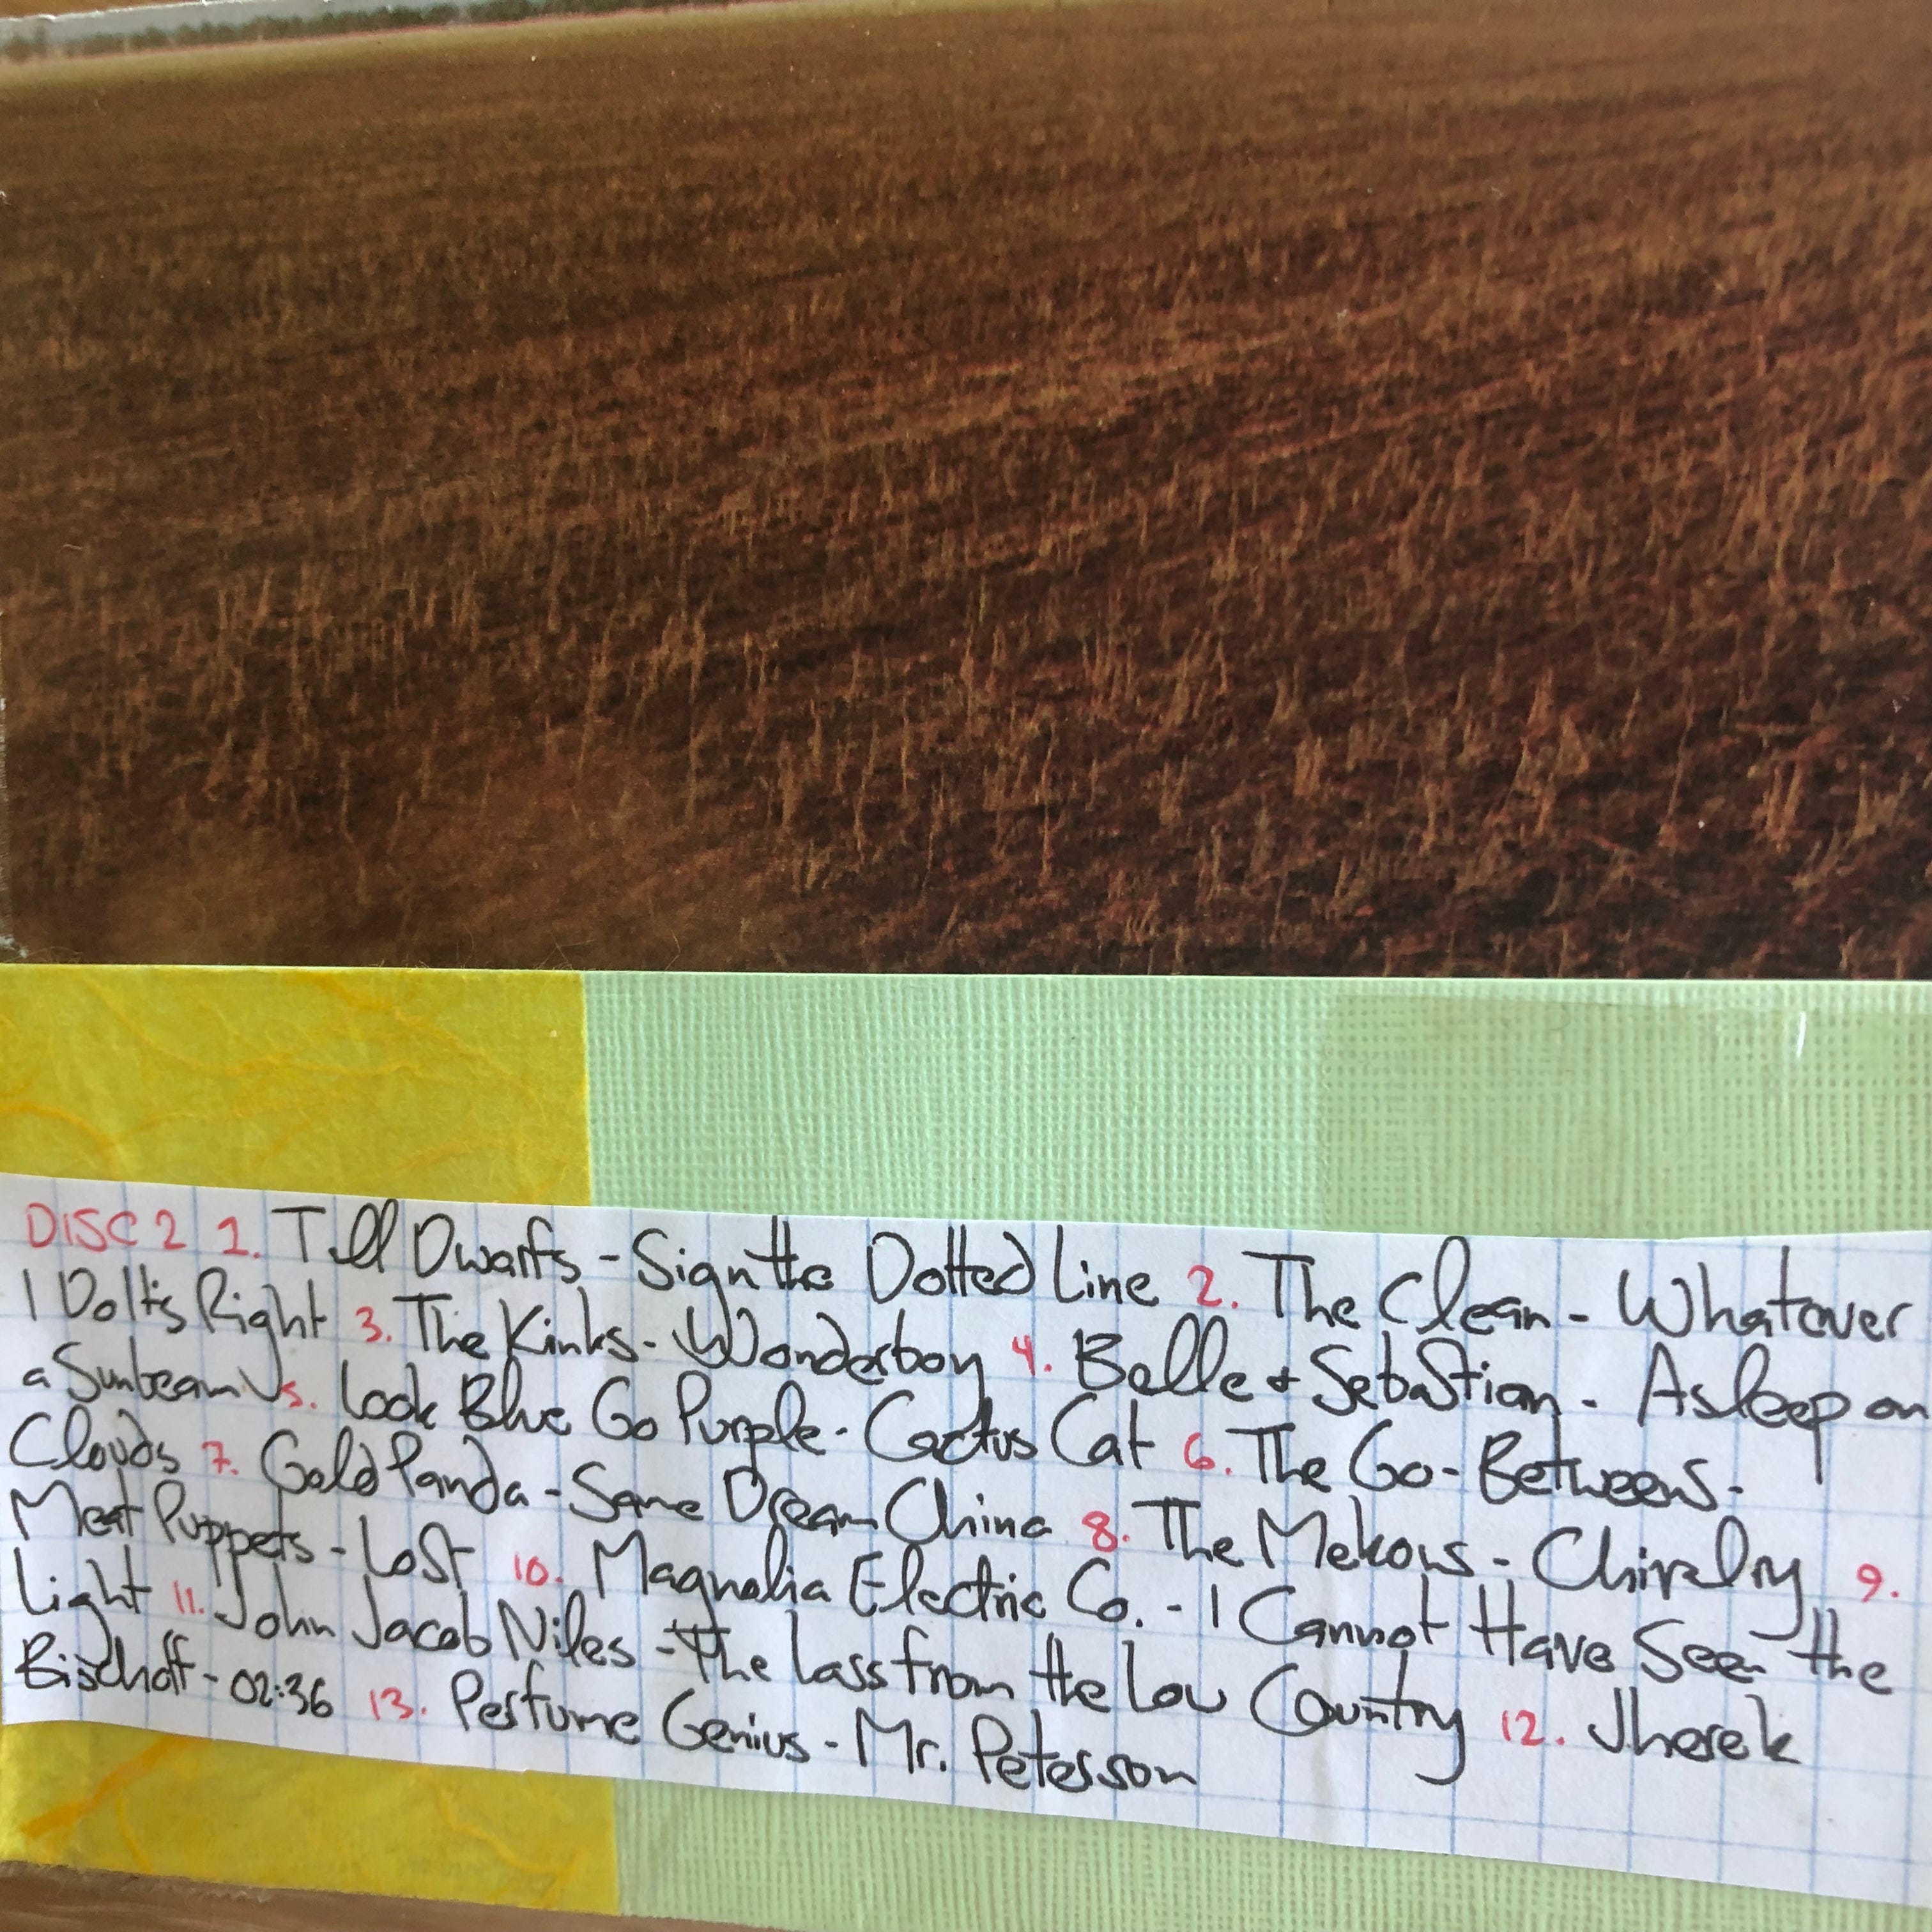 DISC 2 1. Tall Dwarfs - Sign the Dotted Line 2. The Clean - Whatever
I Do It's Right 3. The Kinks - Wonderboy 4. Belle & Sebastian - Asleep on
a Sunbeam 5. Look Blue Go Purple - Cactus Cat 6. The Go-Betweens -
Clouds 7. Gold Panda - Same Dream China 8. The Mekons - Chivalry 9.
Meat Puppets - Lost 10. Magnolia Electric Co. - I Cannot Have Seen the
Light 11. John Jacob Niles - The Lass from the Low Country 12. Jherek
Bischoff - 02:36 13. Perfume Genius - Mr. Peterson